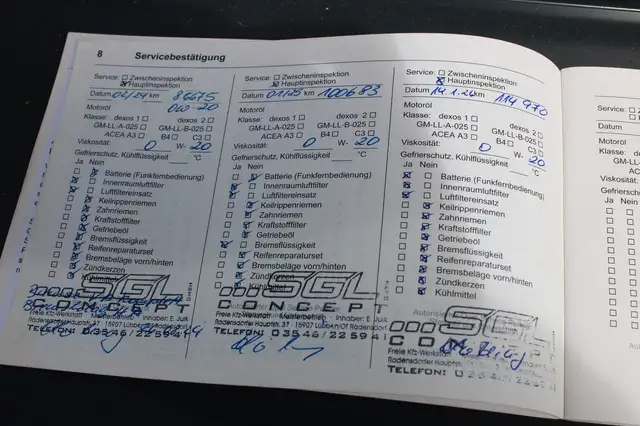 8 Servicebestätigung
Service: Zwischeninspektion
Hauptinspektion
Datum 02/24 km 86675
Motoröl 0W-20
Klasse: dexos 1 dexos 2
GM-LL-A-025 GM-LL-B-025
ACEA A3 B4 C3
Viskosität: 0 W- 20
Gefrierschutz, Kühlflüssigkeit °C
Ja Nein
Batterie (Funkfernbedienung)
Innenraumluftfilter
Luftfiltereinsatz
Keilrippenriemen
Zahnriemen
Kraftstofffilter
Getriebeöl
Bremsflüssigkeit
Reifenreparaturset
Bremsbeläge vorn/hinten
Zündkerzen
SGL
CONCEPT
Freie Kfz-Werkstatt Meisterbetrieb Inhaber: E. Julk
Radensdorfer Hauptstr. 37 15907 Lübben/OT Radensdorf
TELEFON: 03546/225941
Service: Zwischeninspektion
Hauptinspektion
Datum 01/25 km 100683
Motoröl
Klasse: dexos 1 dexos 2
GM-LL-A-025 GM-LL-B-025
ACEA A3 B4 C3
Viskosität: 0 W- 20
Gefrierschutz, Kühlflüssigkeit °C
Ja Nein
Batterie (Funkfernbedienung)
Innenraumluftfilter
Luftfiltereinsatz
Keilrippenriemen
Zahnriemen
Kraftstofffilter
Getriebeöl
Bremsflüssigkeit
Reifenreparaturset
Bremsbeläge vorn/hinten
Zündkerzen
SGL
CONCEPT
Freie Kfz-Werkstatt Meisterbetrieb Inhaber: E. Julk
Radensdorfer Hauptstr. 37 15907 Lübben/OT Radensdorf
TELEFON: 03546/225941
Service: Zwischeninspektion
Hauptinspektion
Datum 14.1.26 km 114970
Motoröl
Klasse: dexos 1 dexos 2
GM-LL-A-025 GM-LL-B-025
ACEA A3 B4 C3
Viskosität: 0 W- 20
Gefrierschutz, Kühlflüssigkeit °C
Ja Nein
Batterie (Funkfernbedienung)
Innenraumluftfilter
Luftfiltereinsatz
Keilrippenriemen
Zahnriemen
Kraftstofffilter
Getriebeöl
Bremsflüssigkeit
Reifenreparaturset
Bremsbeläge vorn/hinten
Zündkerzen
Kühlmittel
SGL
Freie Kfz-Werkstatt
Radensdorfer Hauptstr.
TELEFON: 03546/22594
Service:
Datum
Motoröl
Klasse:
Viskosität:
Gefriersch
Ja Nein